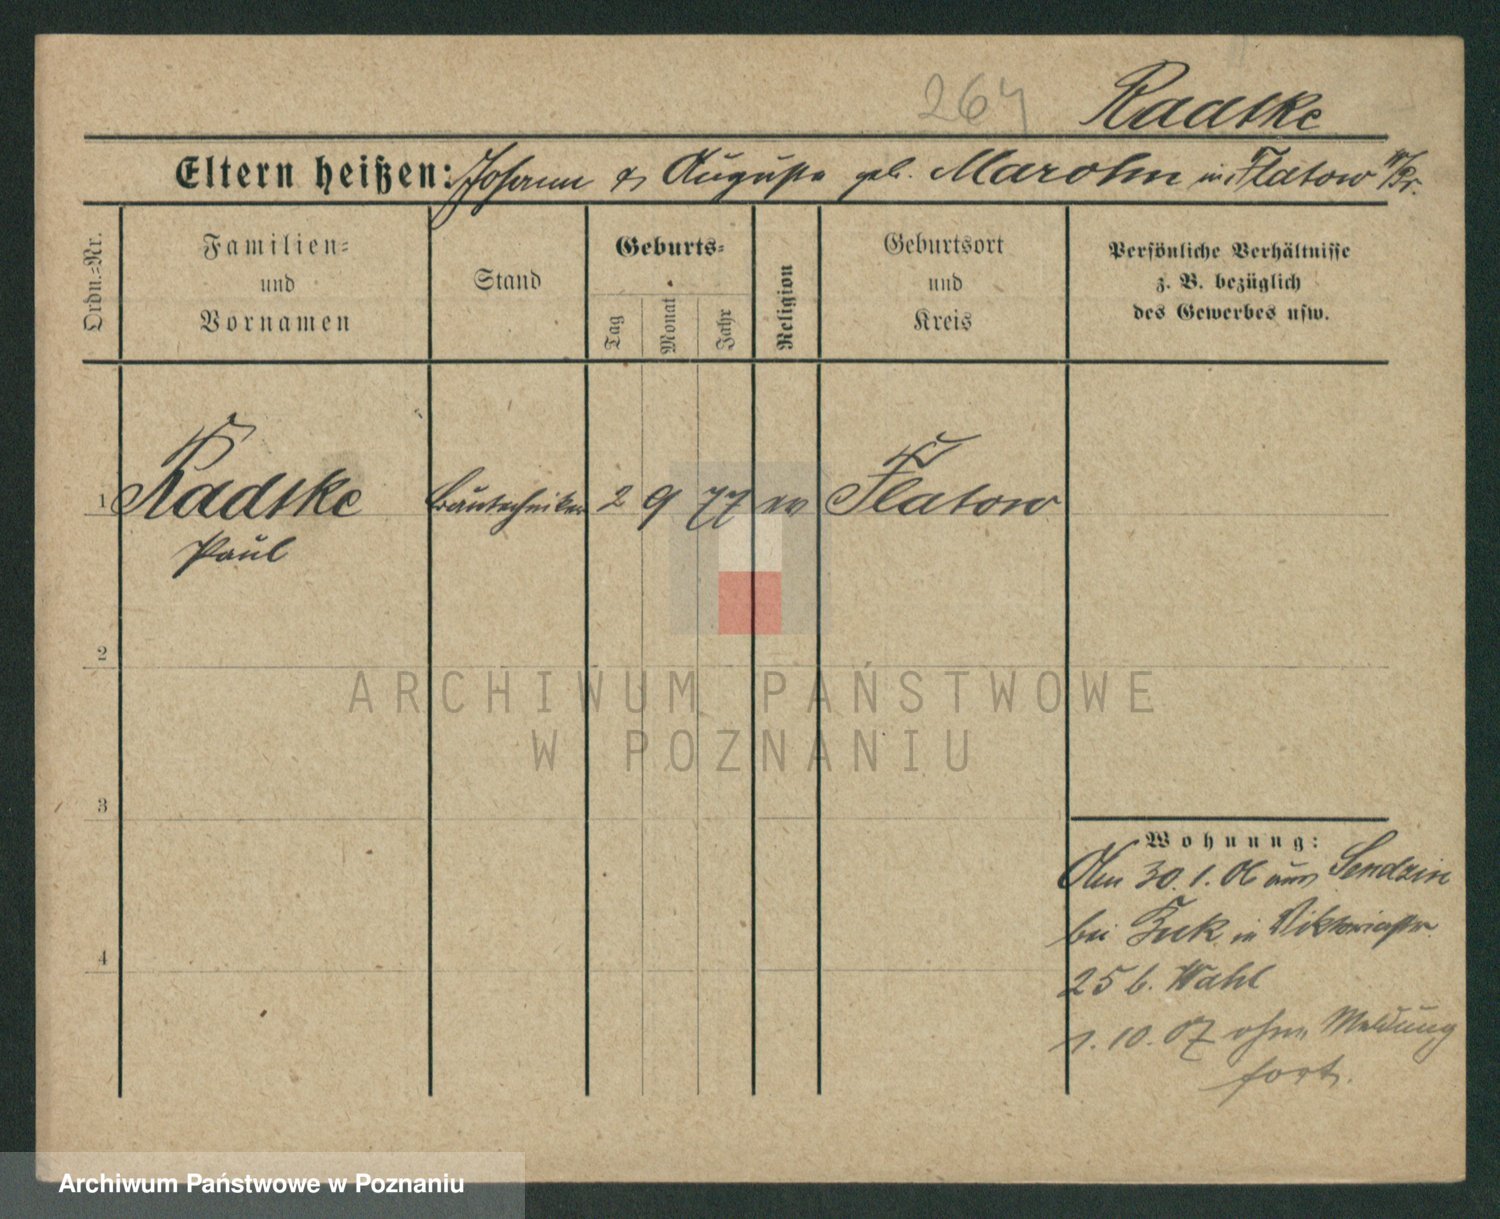 264 Radtke
Eltern heißen: Johann & Auguste geb. Marohn in Flatow W/Pr.
Ordn.=Nr.
Familien=
und
Vornamen
Stand
Geburts=
Tag
Monat
Jahr
Religion
Geburtsort
und
Kreis
Persönliche Verhältnisse
z. B. bezüglich
des Gewerbes usw.
1 Radtke Bautechniker 2 9 77 ev Flatow
Paul
2
3
4
ARCHIWUM PAŃSTWOWE
W POZNANIU
Wohnung:
Am 30.1.06 aus
bei in Viktoriastr.
25 b. Wahl
1.10.07 ohne Meldung
fort.
Archiwum Państwowe w Poznaniu